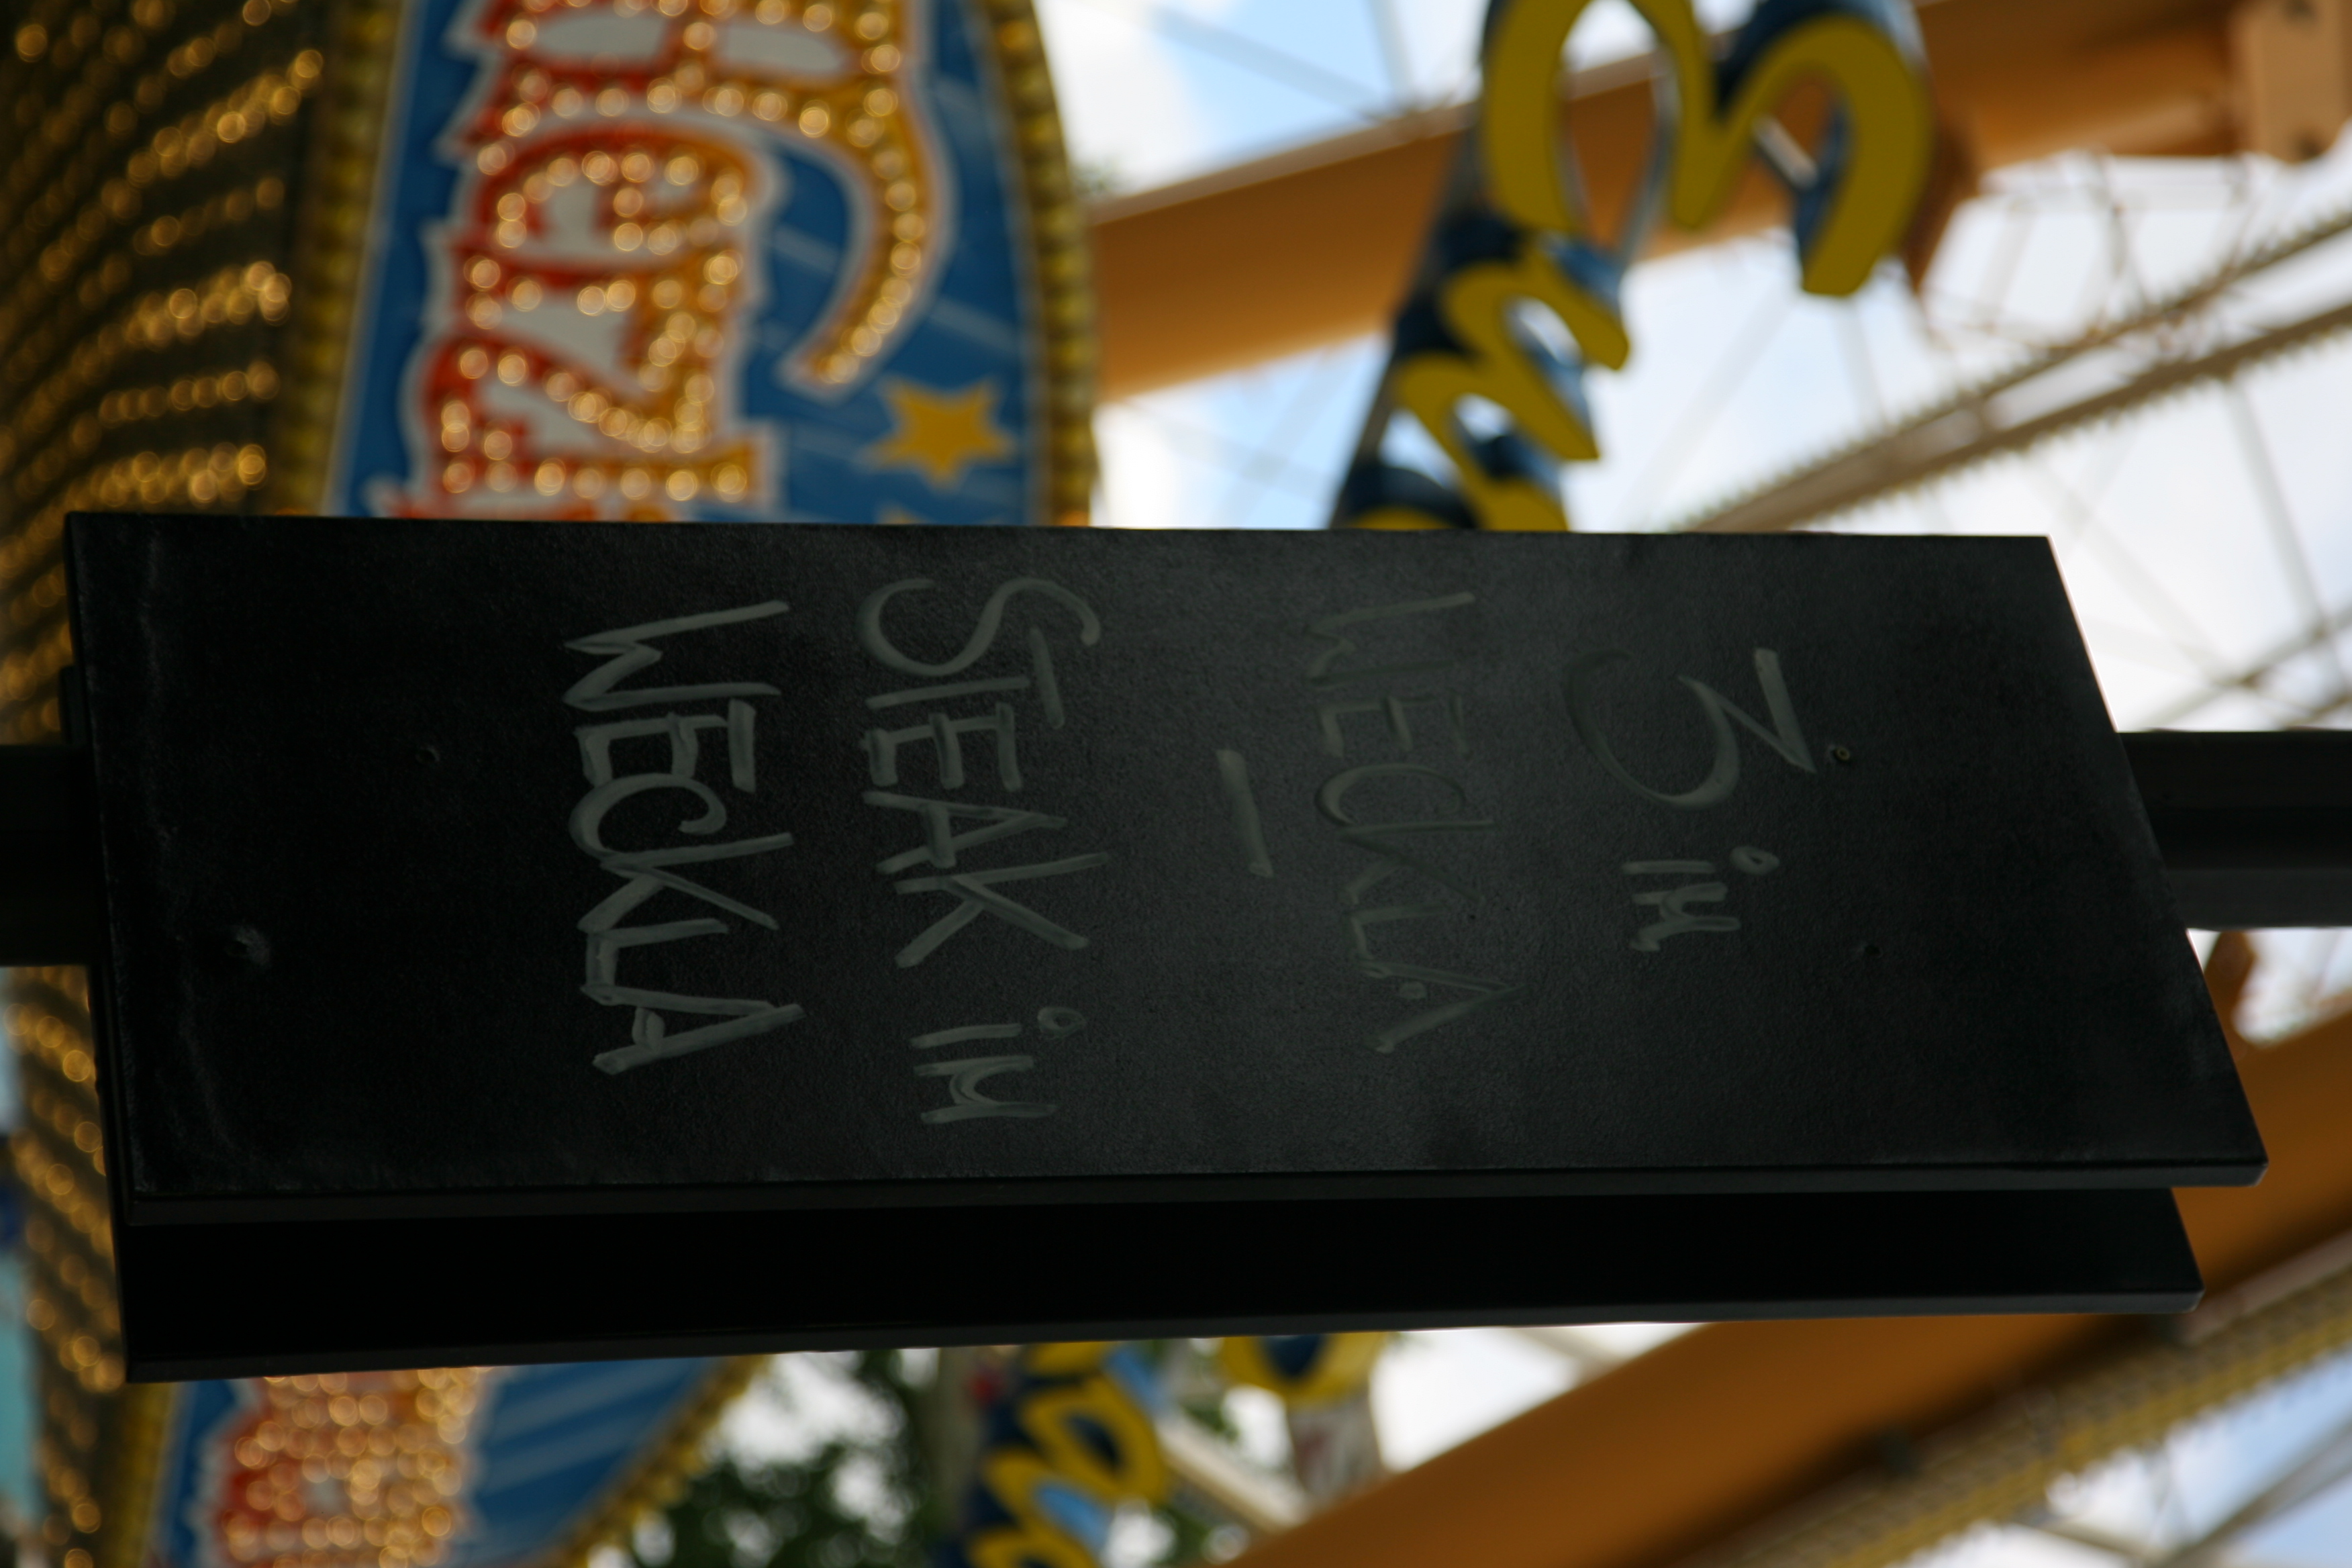 3 im
WECKLA
–
STEAK im
WECKLA
Eu
Herzl